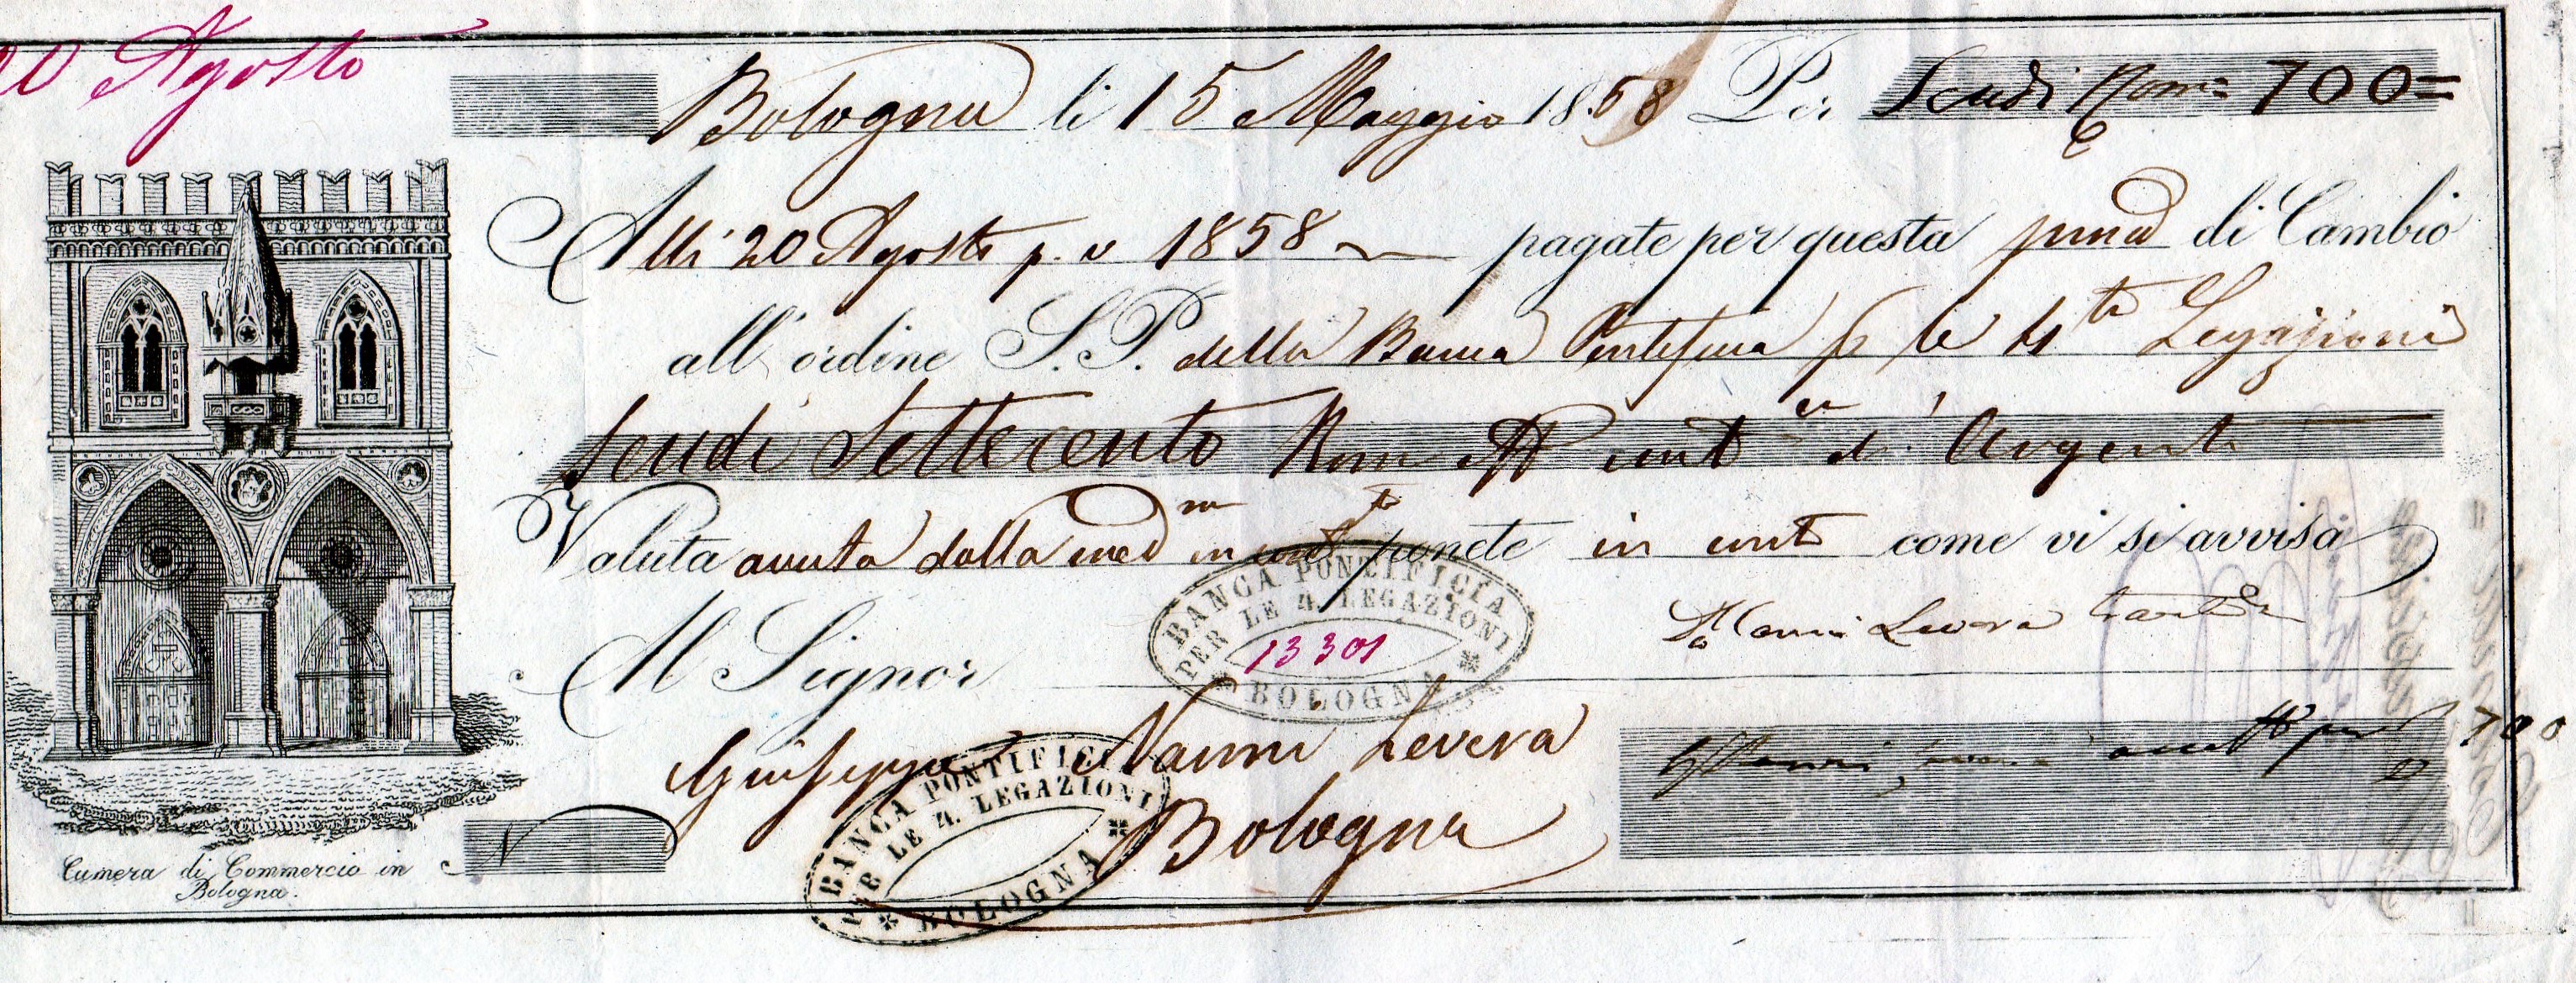 20 Agosto
Bologna li 15 Maggio 1858 Per Scudi Rom: 700=
Alli 20 Agosto p. v 1858 pagate per questa prima di Cambio
all'ordine S. P. della Banca Pontificia p le 4 Legazioni
Scudi Settecento Rom d'Argento
Valuta avuta dalla med ma in ponete in come vi si avvisa
BANCA PONTIFICIA
PER LE 4. LEGAZIONI
13301
BOLOGNA
Al Signor
Giuseppe Nanni Levera
Bologna
700
BANCA PONTIFICIA
PER LE 4. LEGAZIONI
BOLOGNA
N
Camera di Commercio in
Bologna.